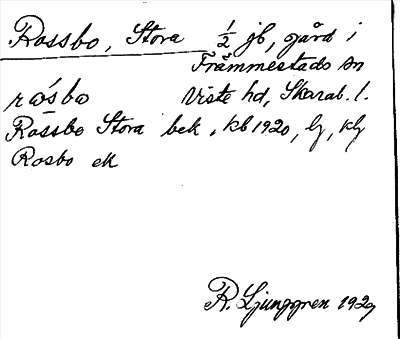 Rossbo, Stora ½ jb, gård i
Främmestads sn
råsbo Viste hd, Skarab. l.
Rossbo Stora bek, kb 1920, lj, klj
Rosbo ek
R. Ljunggren 1929